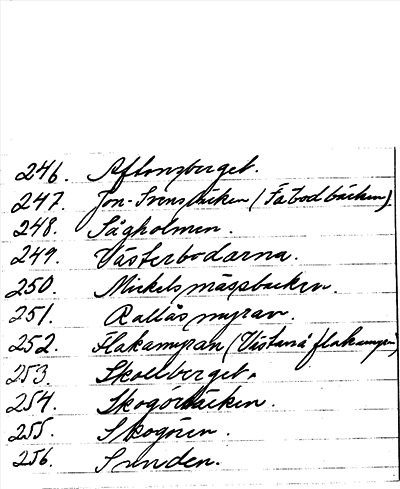 246. Aftonsberget.
247. Jon-Svensbäcken (Fäbodbäcken)
248. Sågholmen.
249. Västerbodarna.
250. Mickelsmässbacken.
251. Rallåsmyran.
252. Flakamyran (Västanå flakamyran)
253. Skollberget.
254. Skogörbäcken.
255. Skogören.
256. Sunden.